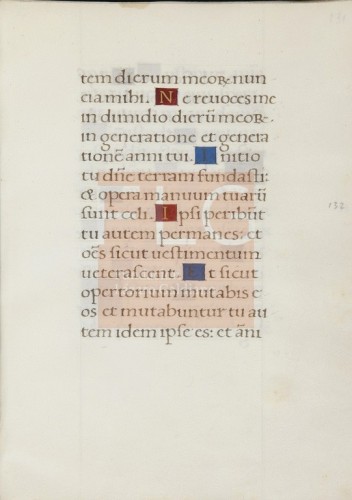 tem dierum meoꝝ nun
cia mihi. Ne reuoces me
in dimidio dierũ meoꝝ.
in generatione et genera
tionẽ anni tui. Initio
tu dñe terram fundasti:
& opera manuum tuarũ
sunt celi. Ipsi peribũt
tu autem permanes: et
oẽs sicut uestimentum
ueterascent. Et sicut
opertorium mutabis e
os et mutabuntur tu au
tem idem ipse es: et ãni
132